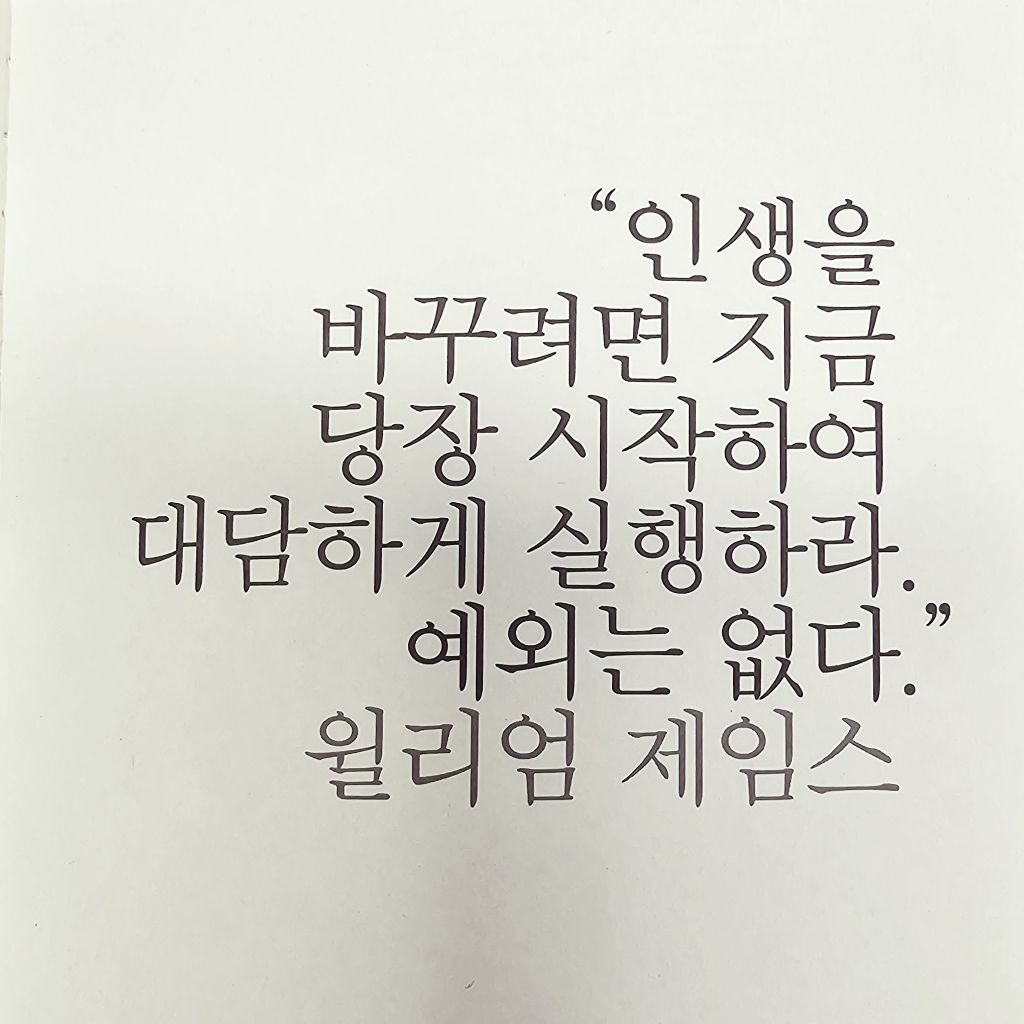 “인생을
바꾸려면 지금
당장 시작하여
대담하게 실행하라.
예외는 없다.”
윌리엄 제임스